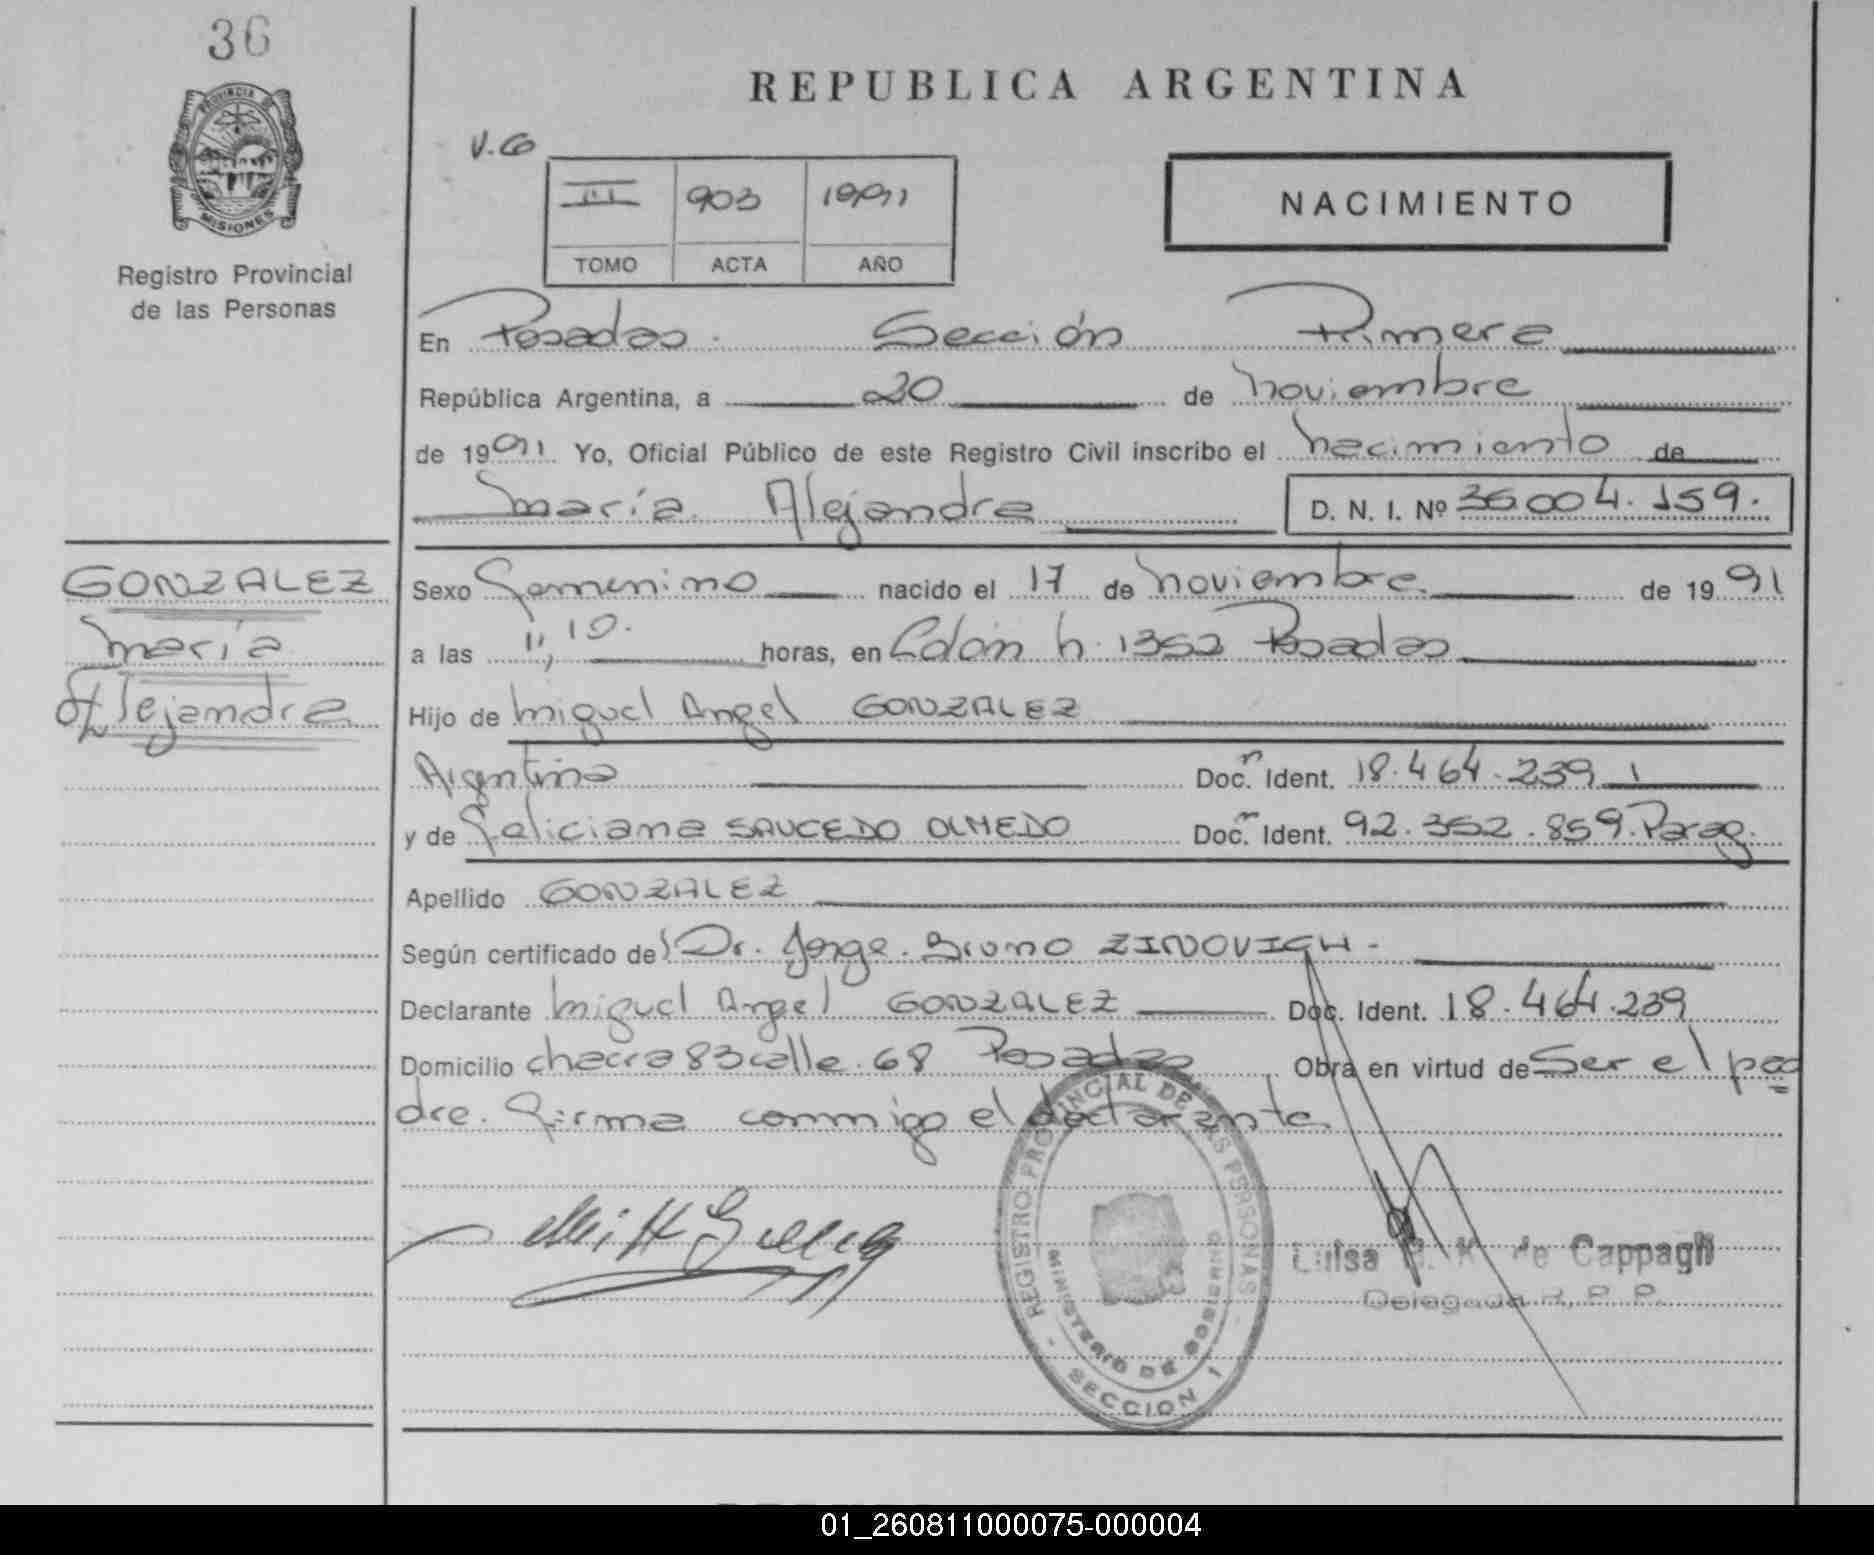 36
PROVINCIA DE
MISIONES
Registro Provincial
de las Personas
REPUBLICA ARGENTINA
V.G
III 903 1991
TOMO ACTA AÑO
NACIMIENTO
En Posadas. Sección Primera
República Argentina, a 20 de noviembre
de 1991 Yo, Oficial Público de este Registro Civil inscribo el nacimiento de
María Alejandra D. N. I. Nº 36.004.159.
GONZALEZ
María
Alejandra
Sexo Femenino nacido el 17 de noviembre de 1991
a las 11,10. horas, en Colón n. 1352 Posadas
Hijo de Miguel Angel GONZALEZ
Argentino Doc. Ident. 18.464.239
y de Feliciana SAUCEDO OLMEDO Doc. Ident. 92.352.859. Parag.
Apellido GONZALEZ
Según certificado de Dr. Jorge. Bruno ZINOVICH -
Declarante Miguel Angel GONZALEZ Doc. Ident. 18.464.239
Domicilio chacra 83 calle. 68 Posadas Obra en virtud de Ser el pa
dre. Firma conmigo el declarante.
REGISTRO PROVINCIAL DE LAS PERSONAS
MINISTERIO DE GOBIERNO
- SECCION 1 -
Luisa K. de Cappagli
Delegada R. P. P.
01_260811000075-000004